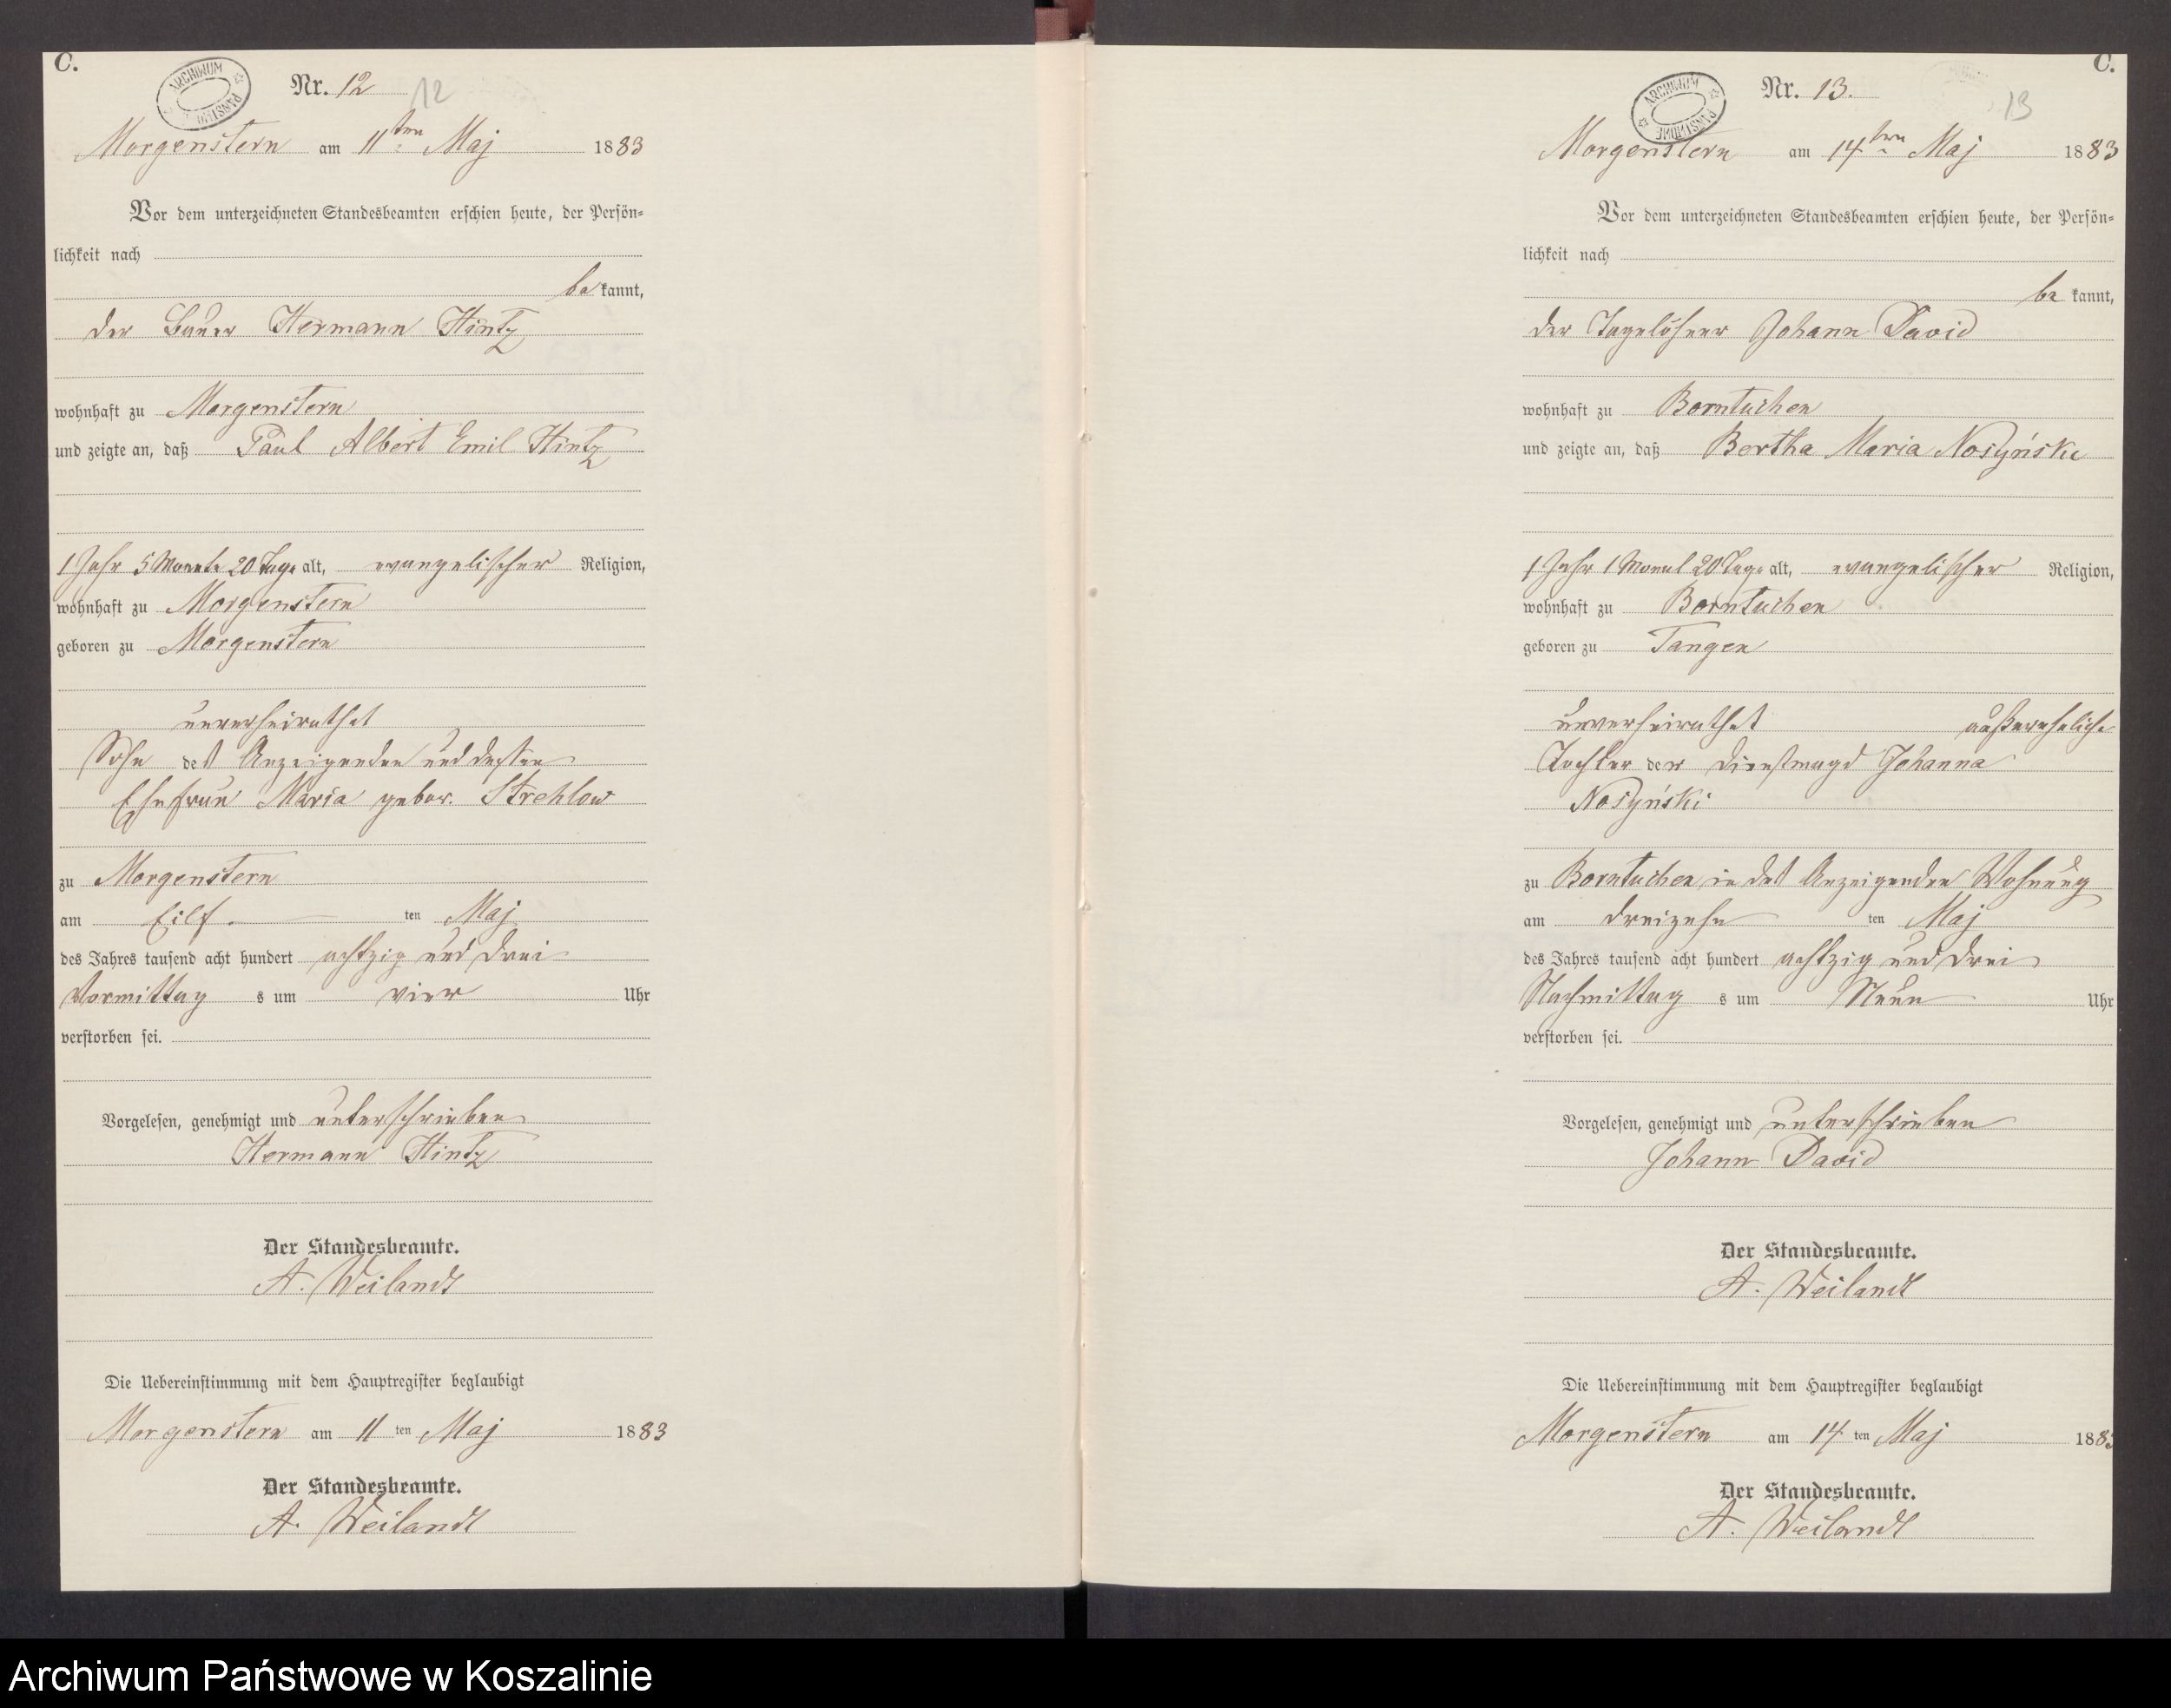 C.
ARCHIWUM PAŃSTWOWE
Nr. 12
12
Morgenstern am 11ten Maj 1883
Vor dem unterzeichneten Standesbeamten erschien heute, der Persön-
lichkeit nach
bekannt,
der Bauer Hermann Hintz
wohnhaft zu Morgenstern
und zeigte an, daß Paul Albert Emil Hintz
1 Jahr 5 Monate 20 Tage alt, evangelischer Religion,
wohnhaft zu Morgenstern
geboren zu Morgenstern
unverheirathet
Sohn des Anzeigenden und dessen
Ehefrau Maria gebor. Strehlow
zu Morgenstern
am Eilf ten Maj
des Jahres tausend acht hundert achtzig und drei
Vormittag s um vier Uhr
verstorben sei.
Vorgelesen, genehmigt und unterschrieben
Hermann Hintz
Der Standesbeamte.
A. Weilandt
Die Uebereinstimmung mit dem Hauptregister beglaubigt
Morgenstern am 11 ten Maj 1883
Der Standesbeamte.
A. Weilandt
C.
ARCHIWUM PAŃSTWOWE
Nr. 13.
13
Morgenstern am 14ten Maj 1883
Vor dem unterzeichneten Standesbeamten erschien heute, der Persön-
lichkeit nach
be kannt,
der Tagelöhner Johann David
wohnhaft zu Borntuchen
und zeigte an, daß Bertha Maria Nosyński
1 Jahr 1 Monat 20 Tage alt, evangelischer Religion,
wohnhaft zu Borntuchen
geboren zu Tangen
unverheirathet außereheliche
Tochter der Dienstmagd Johanna
Nosyński
zu Borntuchen in des Anzeigenden Wohnung
am dreizehn ten Maj
des Jahres tausend acht hundert achtzig und drei
Nachmittag s um Neun Uhr
verstorben sei.
Vorgelesen, genehmigt und unterschrieben
Johann David
Der Standesbeamte.
A. Weilandt
Die Uebereinstimmung mit dem Hauptregister beglaubigt
Morgenstern am 14 ten Maj 1883
Der Standesbeamte.
A. Weilandt
Archiwum Państwowe w Koszalinie